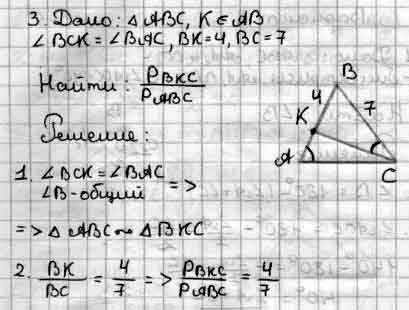 3. Дано: △ABC, K ∈ AB
∠BCK = ∠BAC, BK = 4, BC = 7
Найти: P_BKC / P_ABC
Решение:
1. ∠BCK = ∠BAC
∠B - общий =>
=> △ABC ∼ △BKC
2. BK/BC = 4/7 => P_BKC / P_ABC = 4/7
B
4
7
K
A
C